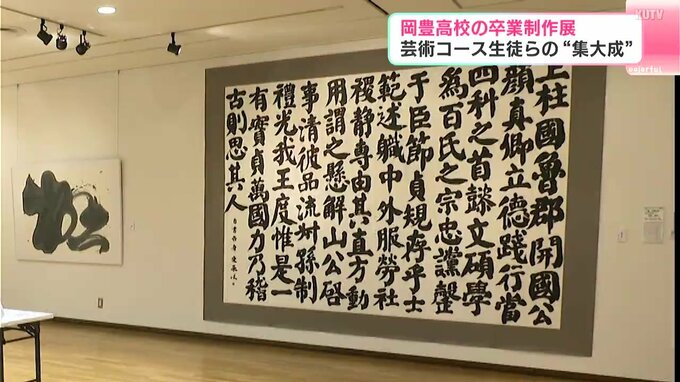 KUTV
岡豊高校の卒業制作展
芸術コース生徒らの“集大成”
colorful
上柱國魯郡開國公
顔真卿立德踐行當
四科之首懿文碩學
爲百氏之宗忠讜罄
于臣節貞規存乎士
範述職中外服勞社
稷静專由其直方動
用謂之懸解山公啓
事清彼品流叔孫制
禮光我王度惟是一
有實貞萬國力乃稽
古則思其人